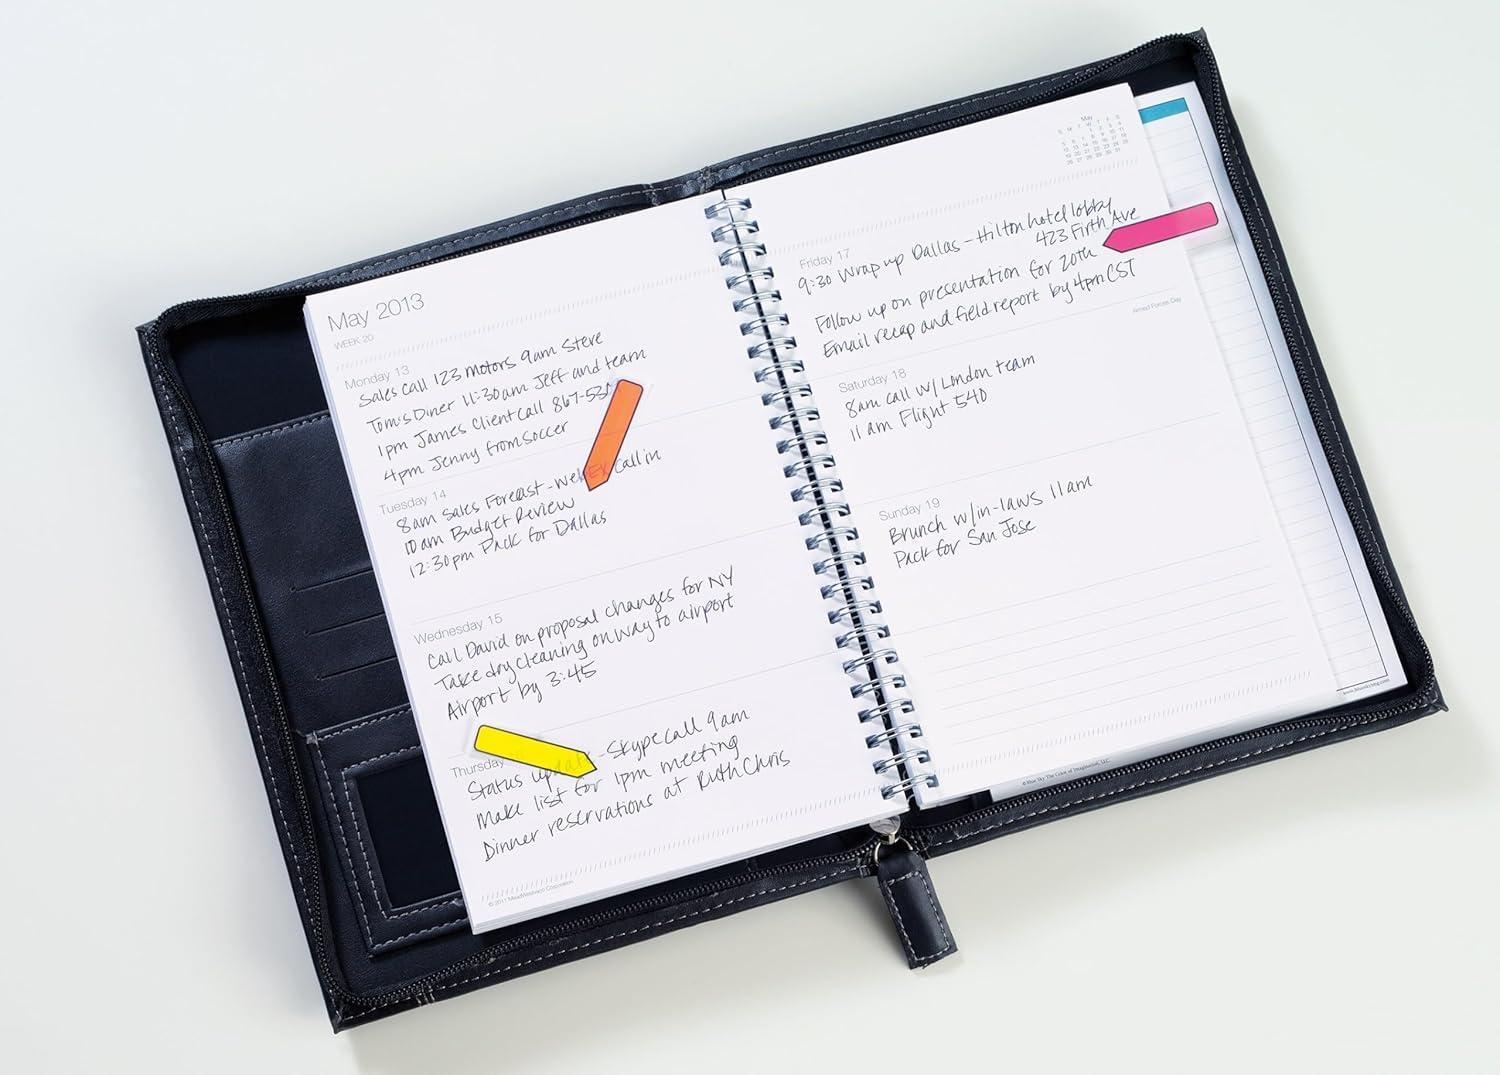 May 2013
WEEK 20
Monday 13
Sales call 123 motors 9am Steve
Tom's Diner 11:30am Jeff and team
1pm James Client call 867-53
4pm Jenny from soccer
Tuesday 14
8am Sales Forecast - WebEx Call in
10am Budget Review
12:30pm Pack for Dallas
Wednesday 15
Call David on proposal changes for NY
Take dry cleaning on way to airport
Airport by 3:45
Thursday
Status update - Skype call 9am
Make list for 1pm meeting
Dinner reservations at Ruth Chris
© 2011 MeadWestvaco Corporation
May
S M T W T F S
1 2 3 4
5 6 7 8 9 10 11
12 13 14 15 16 17 18
19 20 21 22 23 24 25
26 27 28 29 30 31
Friday 17
9:30 Wrap up Dallas - Hilton hotel lobby
423 Firth Ave
Follow up on presentation for 20th
Email recap and field report by 4pm CST
Armed Forces Day
Saturday 18
8am call w/ London team
11 am Flight 540
Sunday 19
Brunch w/in-laws 11am
Pack for San Jose
© Blue Sky The Color of Imagination, LLC.
www.bluesky.com